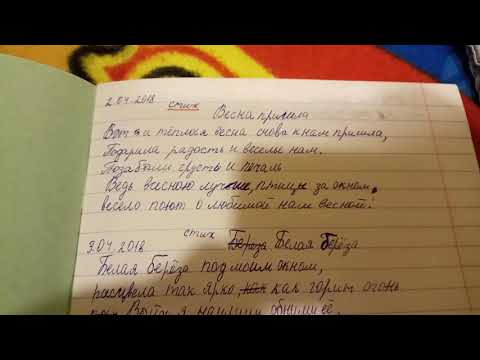 2.04.2018
стих Весна пришла
Вот и тёплая весна снова к нам пришла,
Подарила радость и веселье нам.
Позабыли грусть и печаль
Ведь весною лучше, птицы за окном,
весело поют о любимой нам весной!
3.04.2018 стих Берёза Белая берёза
Белая берёза под моим окном,
расцвела так ярко, как как горит огонь
Выйду я